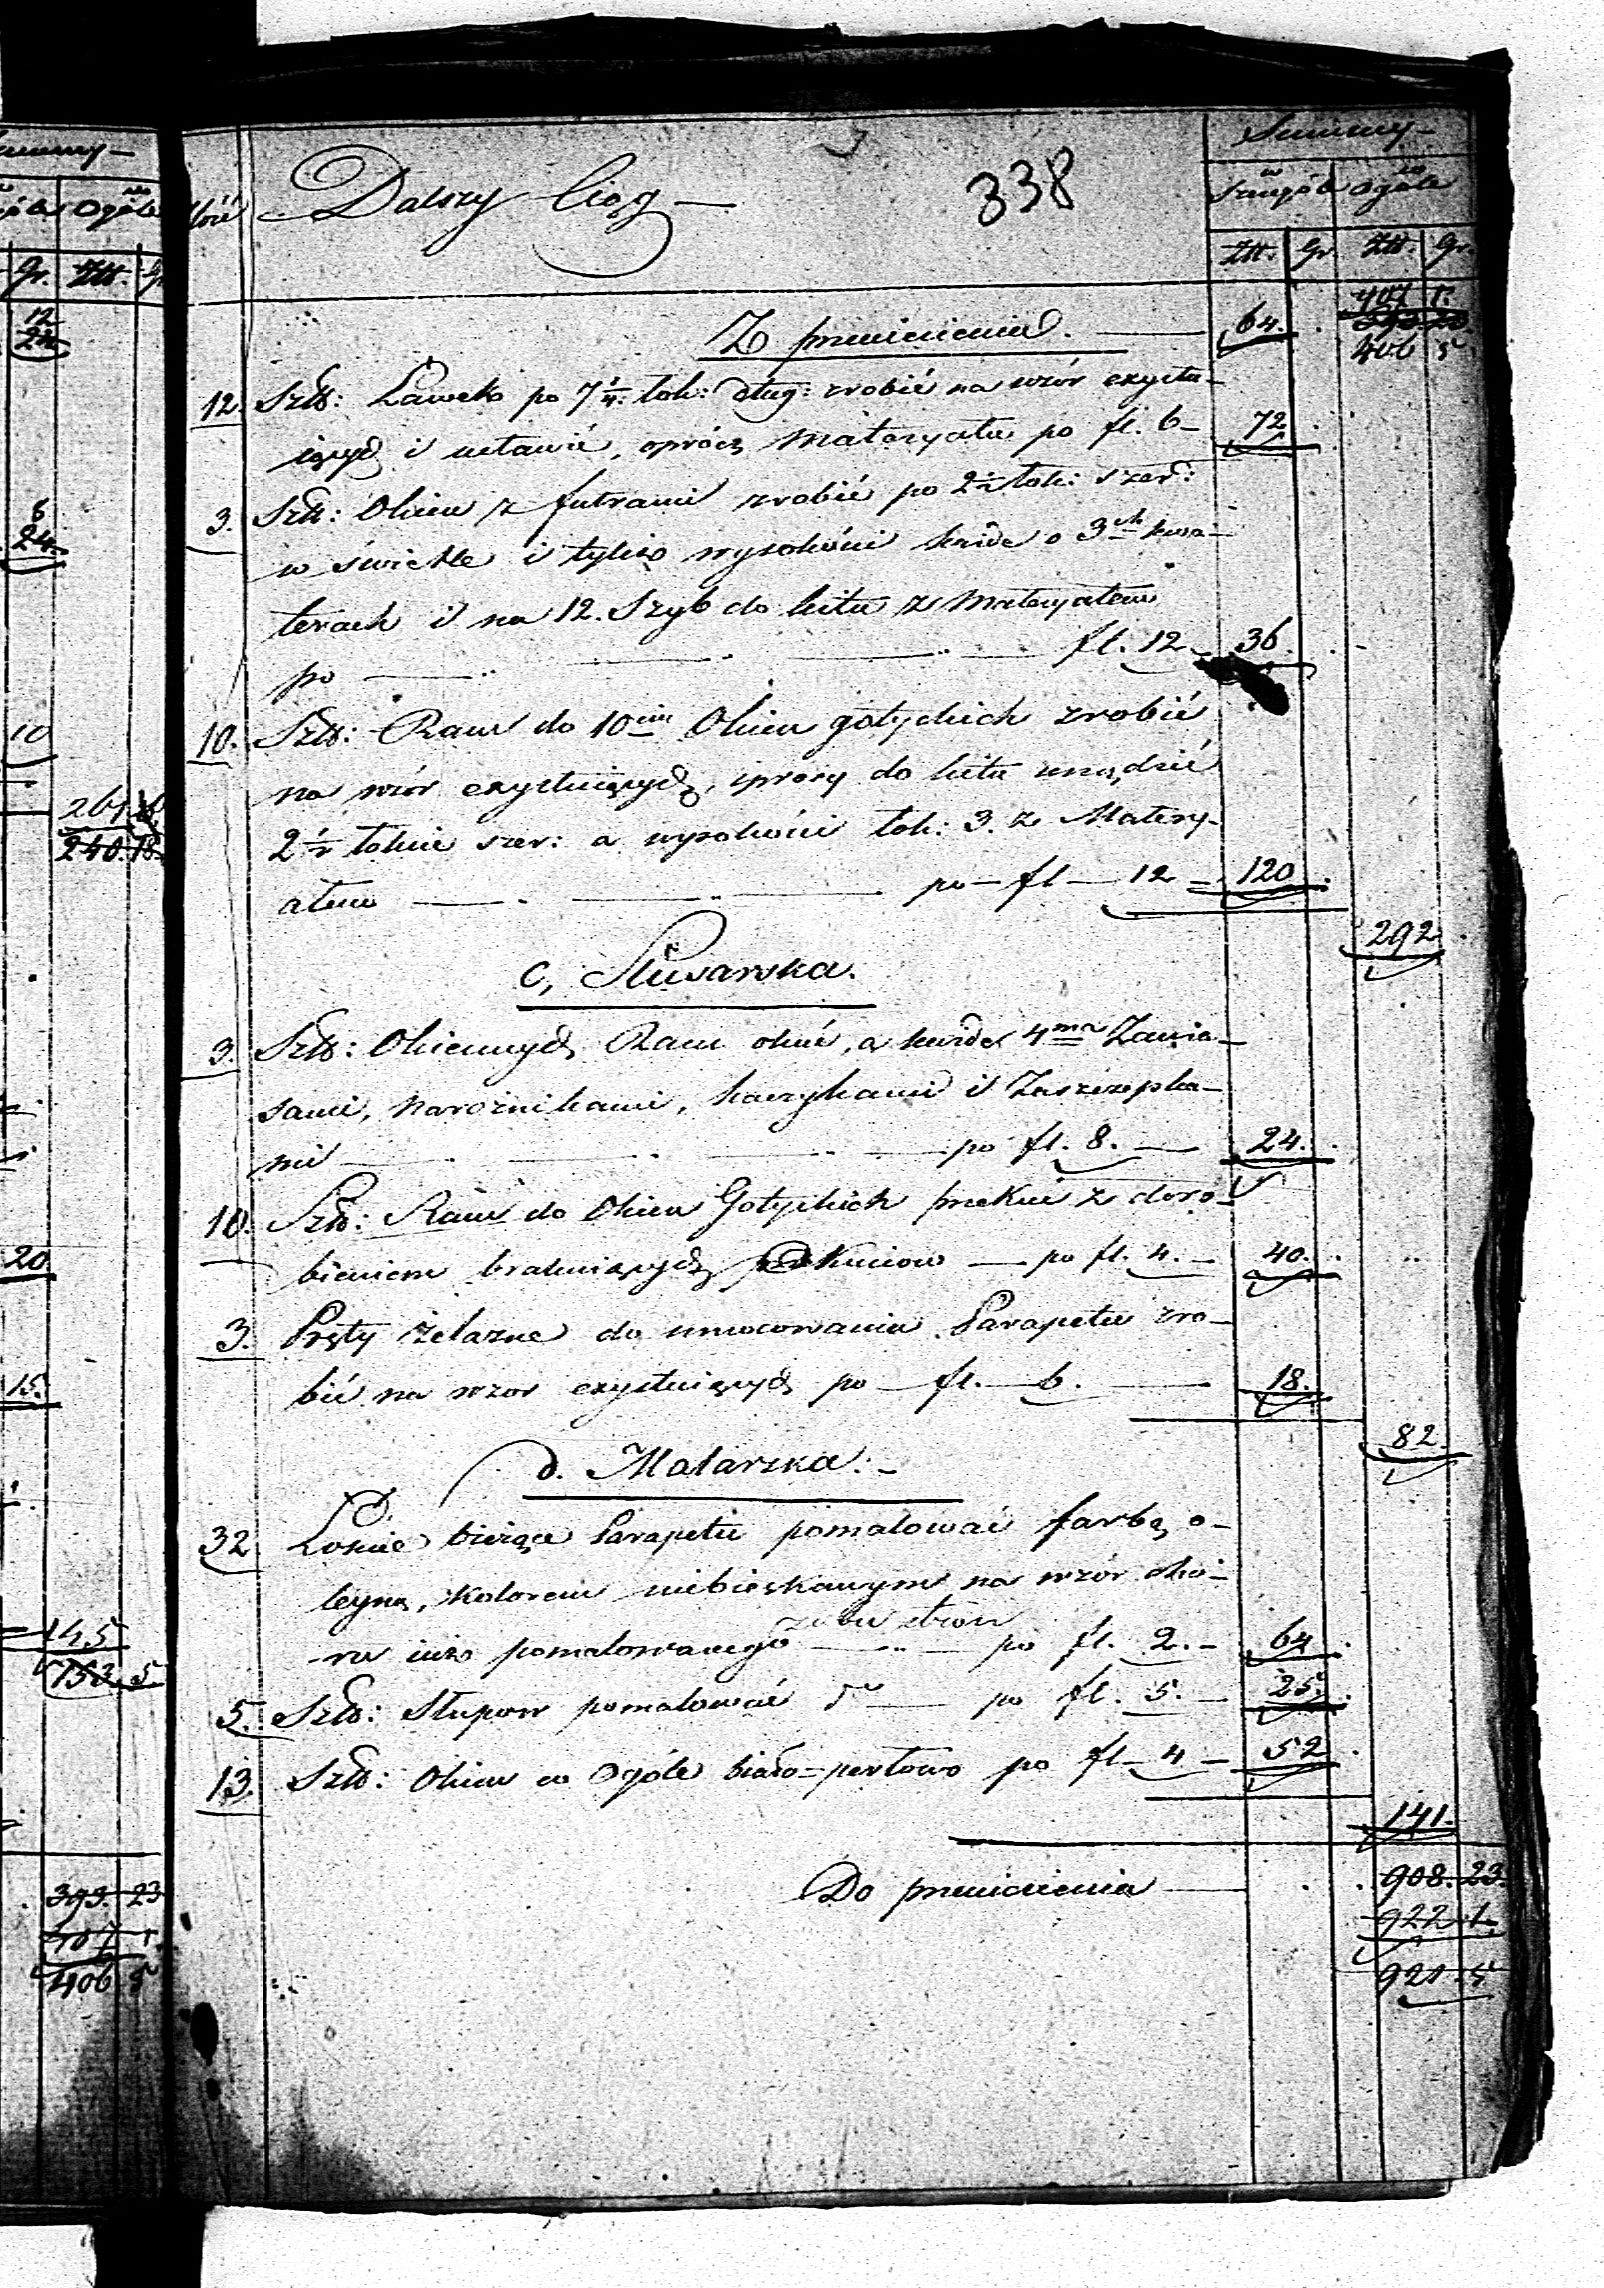 Summy
w Szczególe w Ogóle
Złt. Gr. Złt. Gr.
Ilość Dalszy Ciąg 338
407 1.
393 23
Z przeniesienia. 64. 406 5
12. Szt: Ławek po 7 1/4 łok: dług: zrobić na wzór exystu-
iących i ustawić, oprócz materyału po fl. 6 72
3. Szt: Okien z futrami zrobić po 2 1/2 łok: szer:
w świetle i tyleż wysokości każde o 3ch kwa-
terach i na 12. Szyb do kitu z Materyałem
po fl. 12 36.
10. Szt: Ram do 10ciu Okien gotyckich zrobić
na wzór exystuiących, sprosy do kitu urządzić
2 1/2 łokcie szer: a wysokości łok: 3. z Matery-
ałem po fl 12 120.
292.
c, Slusarska.
3. Szt: Okiennych Ram okuć, a każde 4ma Zawia-
sami, narożnikami, haczykami i Zaszczepka-
mi po fl. 8. 24.
10. Szt: Ram do Okien Gotyckich przekuć z doro-
bieniem brakuiących okuciow po fl. 4. 40.
3. Pręty żelazne do umocowania Parapetu zro-
bić na wzor exystuiących po fl. 6. 18.
82.
d. Malarska:
32 Łokcie bieżące Parapetu pomalować farbą o-
leyną, kolorem niebieskawym na wzór chó-
ru iuż pomalowanego z obu stron po fl. 2. 64
5. Szt: Słupow pomalować po fl. 5. 25.
13. Szt: Okien w Ogóle biało-perłowo po fl 4 52
141.
Do przeniesienia 908. 23.
922 1.
921 5